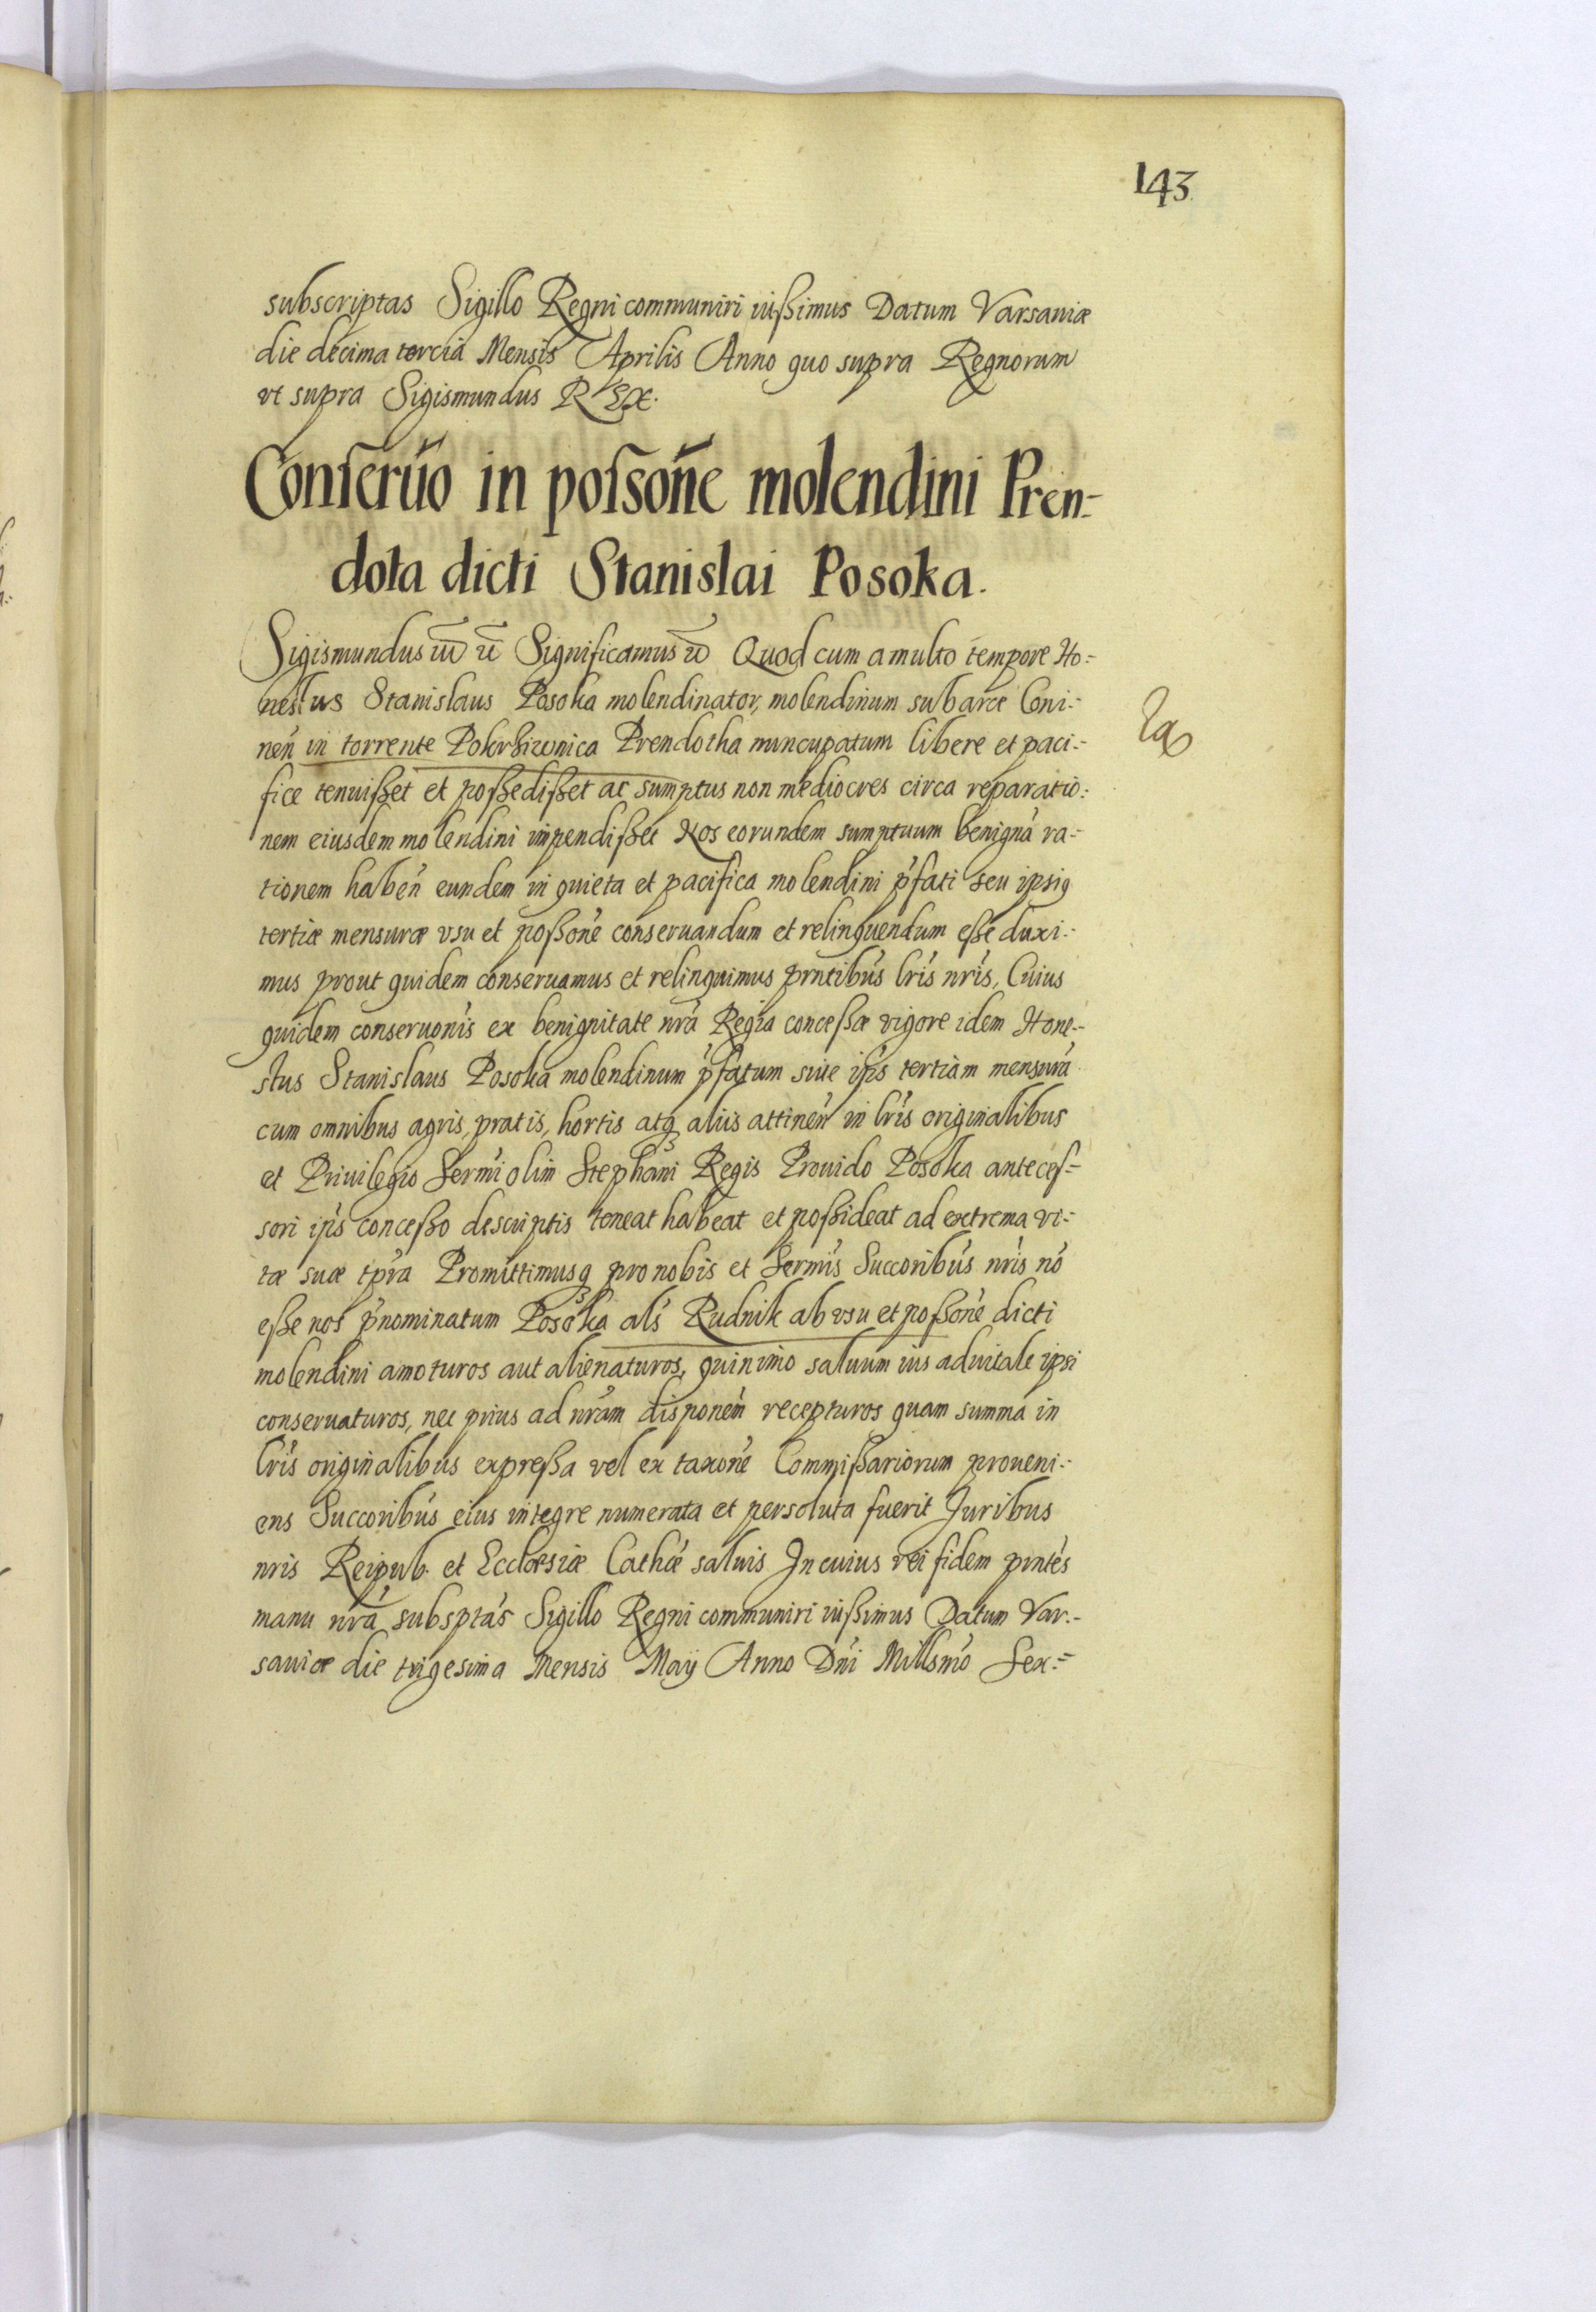 143
subscriptas Sigillo Regni communiri iußimus Datum Varsaviæ
die decima tercia Mensis Aprilis Anno quo supra Regnorum
vt supra Sigismundus REX.
Conseru̅o in poſson̅e molendini Pren-
dota dicti Stanislai Posoka.
Sigismundus Significamus Quod cum a multo tempore Ho-
nestus Stanislaus Posoka molendinator, molendinum sub arce Coni-
nen̅ in torrente Pokrziwnica Prendotha nuncupatum libere et paci-
fice tenuißet et poßedißet ac sumptus non mediocres circa reparatio-
nem eiusdem molendini impendißet Nos eorundem sumptuum benignā ra-
tionem haben̅ eundem in quieta et pacifica molendini p̅fati seu ipsiq
tertiæ mensuræ vsu et poßon̅e conseruandum et relinquendum eße duxi-
mus prout quidem conseruamus et relinquimus prn̅tibus lr̅is nr̅is, Cuius
quidem conseruon̅is ex benignitate nr̅a Regia conceßæ vigore idem Hone-
stus Stanislaus Posoka molendinum p̅fatum siue ip̅s tertiam mensurā
cum omnibus agris, pratis, hortis atq₃ aliis attinen̅ in lr̅is originalibus
et Priuilegio Serm̅i olim Stephani Regis Prouido Posoka anteceſ-
sori ip̅s conceßo descriptis teneat habeat et poßideat ad extrema vi-
tæ suæ tp̅ra Promittimusq₃ pro nobis et Serm̅is Succoribus nr̅is nō
eße nos p̅nominatum Posoka al̅s Rudnik ab vsu et poßon̅e dicti
molendini amoturos aut alienaturos, quinimo saluum ius aduitale ipsi
conseruaturos, nec prius ad nr̅am dispon̅em recepturos quam summa in
lr̅is originalibus expreßa vel ex taxon̅e Commißariorum proueni-
ens Succoribus eius integre numerata et persoluta fuerit Juribus
nris Reipub. et Ecclesiæ Cathæ saluis In cuius rei fidem prn̅tes
manu nr̅a subsptas Sigillo Regni communiri iußimus Datum Var-
saviæ die trigesima Mensis Maÿ Anno Dn̅i Millsm̅o Sex-